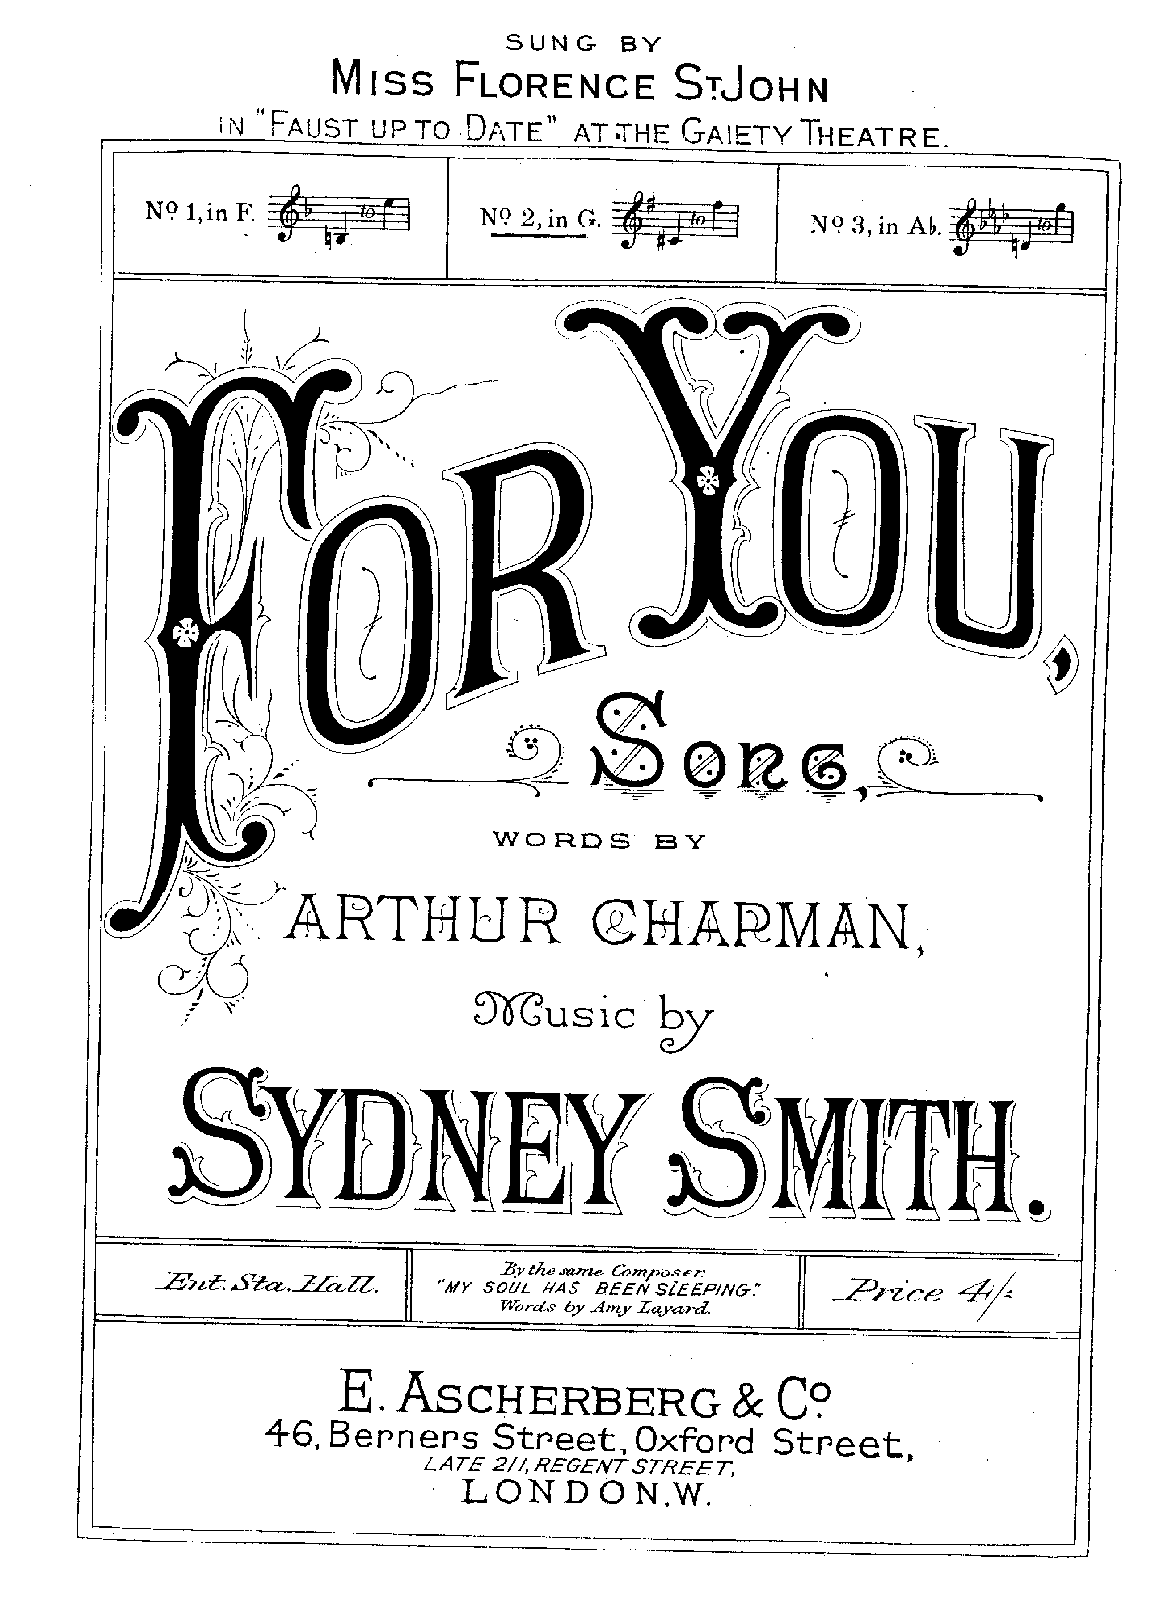 SUNG BY
MISS FLORENCE ST. JOHN
IN "FAUST UP TO DATE" AT THE GAIETY THEATRE.
No. 1, in F. to
No. 2, in G. to
No. 3, in A♭. to
FOR YOU,
SONG,
WORDS BY
ARTHUR CHAPMAN,
Music by
SYDNEY SMITH.
Ent. Sta. Hall.
By the same Composer.
"MY SOUL HAS BEEN SLEEPING."
Words by Amy Layard.
Price 4/-
E. ASCHERBERG & Co.
46, Berners Street, Oxford Street,
LATE 211, REGENT STREET,
LONDON, W.